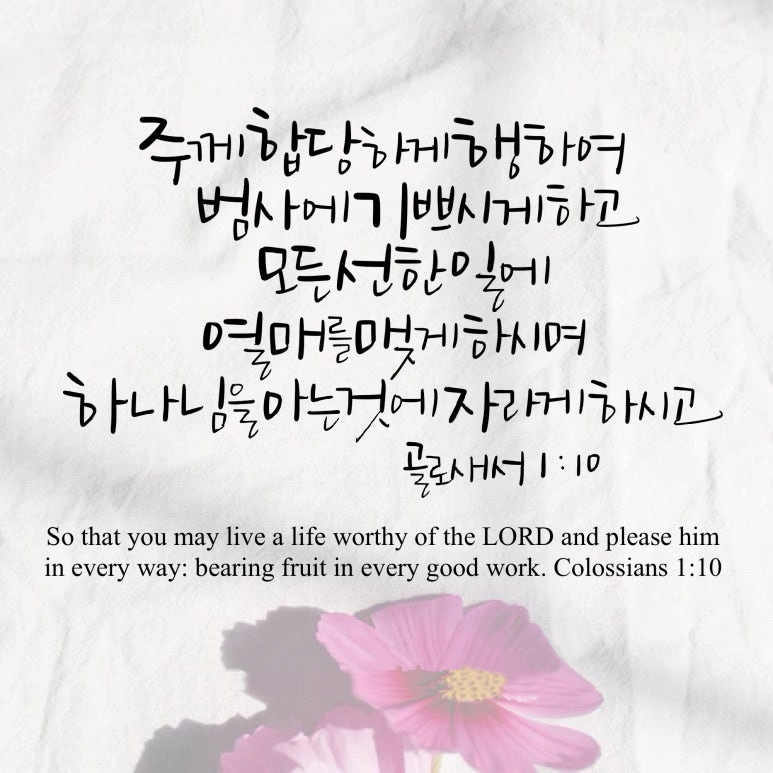 주께 합당하게 행하여
범사에 기쁘시게 하고
모든 선한 일에
열매를 맺게 하시며
하나님을 아는 것에 자라게 하시고
골로새서 1:10
So that you may live a life worthy of the LORD and please him
in every way: bearing fruit in every good work. Colossians 1:10